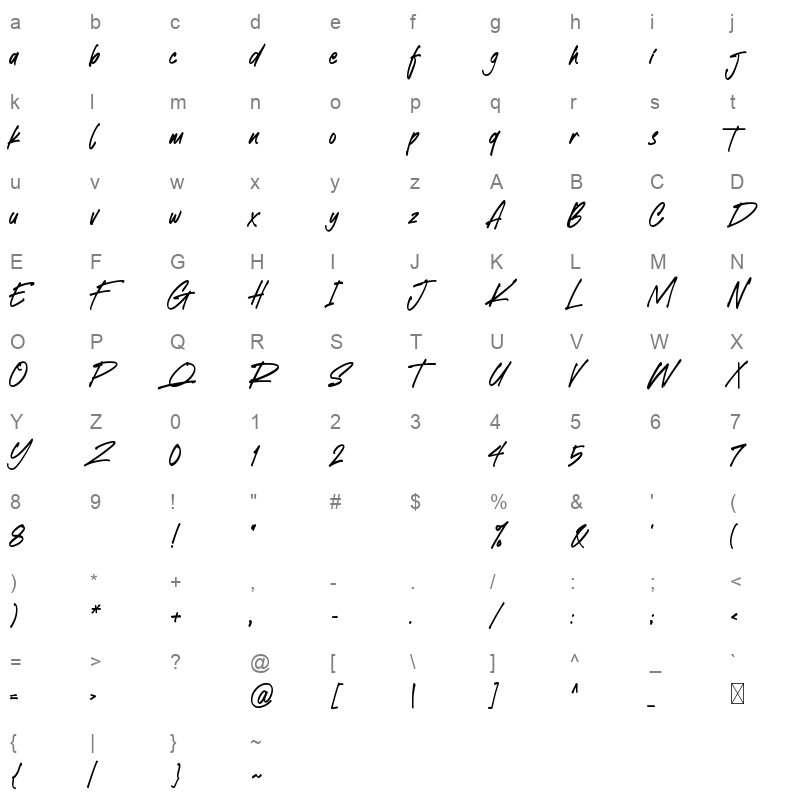 a b c d e f g h i j
a b c d e f g h i J
k l m n o p q r s t
k l m n o p q r s T
u v w x y z A B C D
u v w x y z A B C D
E F G H I J K L M N
E F G H I J K L M N
O P Q R S T U V W X
O P Q R S T U V W X
Y Z 0 1 2 3 4 5 6 7
Y Z 0 1 2 4 5 7
8 9 ! " # $ % & ' (
8 ! " % & ' (
) * + , - . / : ; <
) * + , - . / : ; <
= > ? @ [ \ ] ^ _ `
= > @ [ \ ] ^ _
{ | } ~
{ | } ~